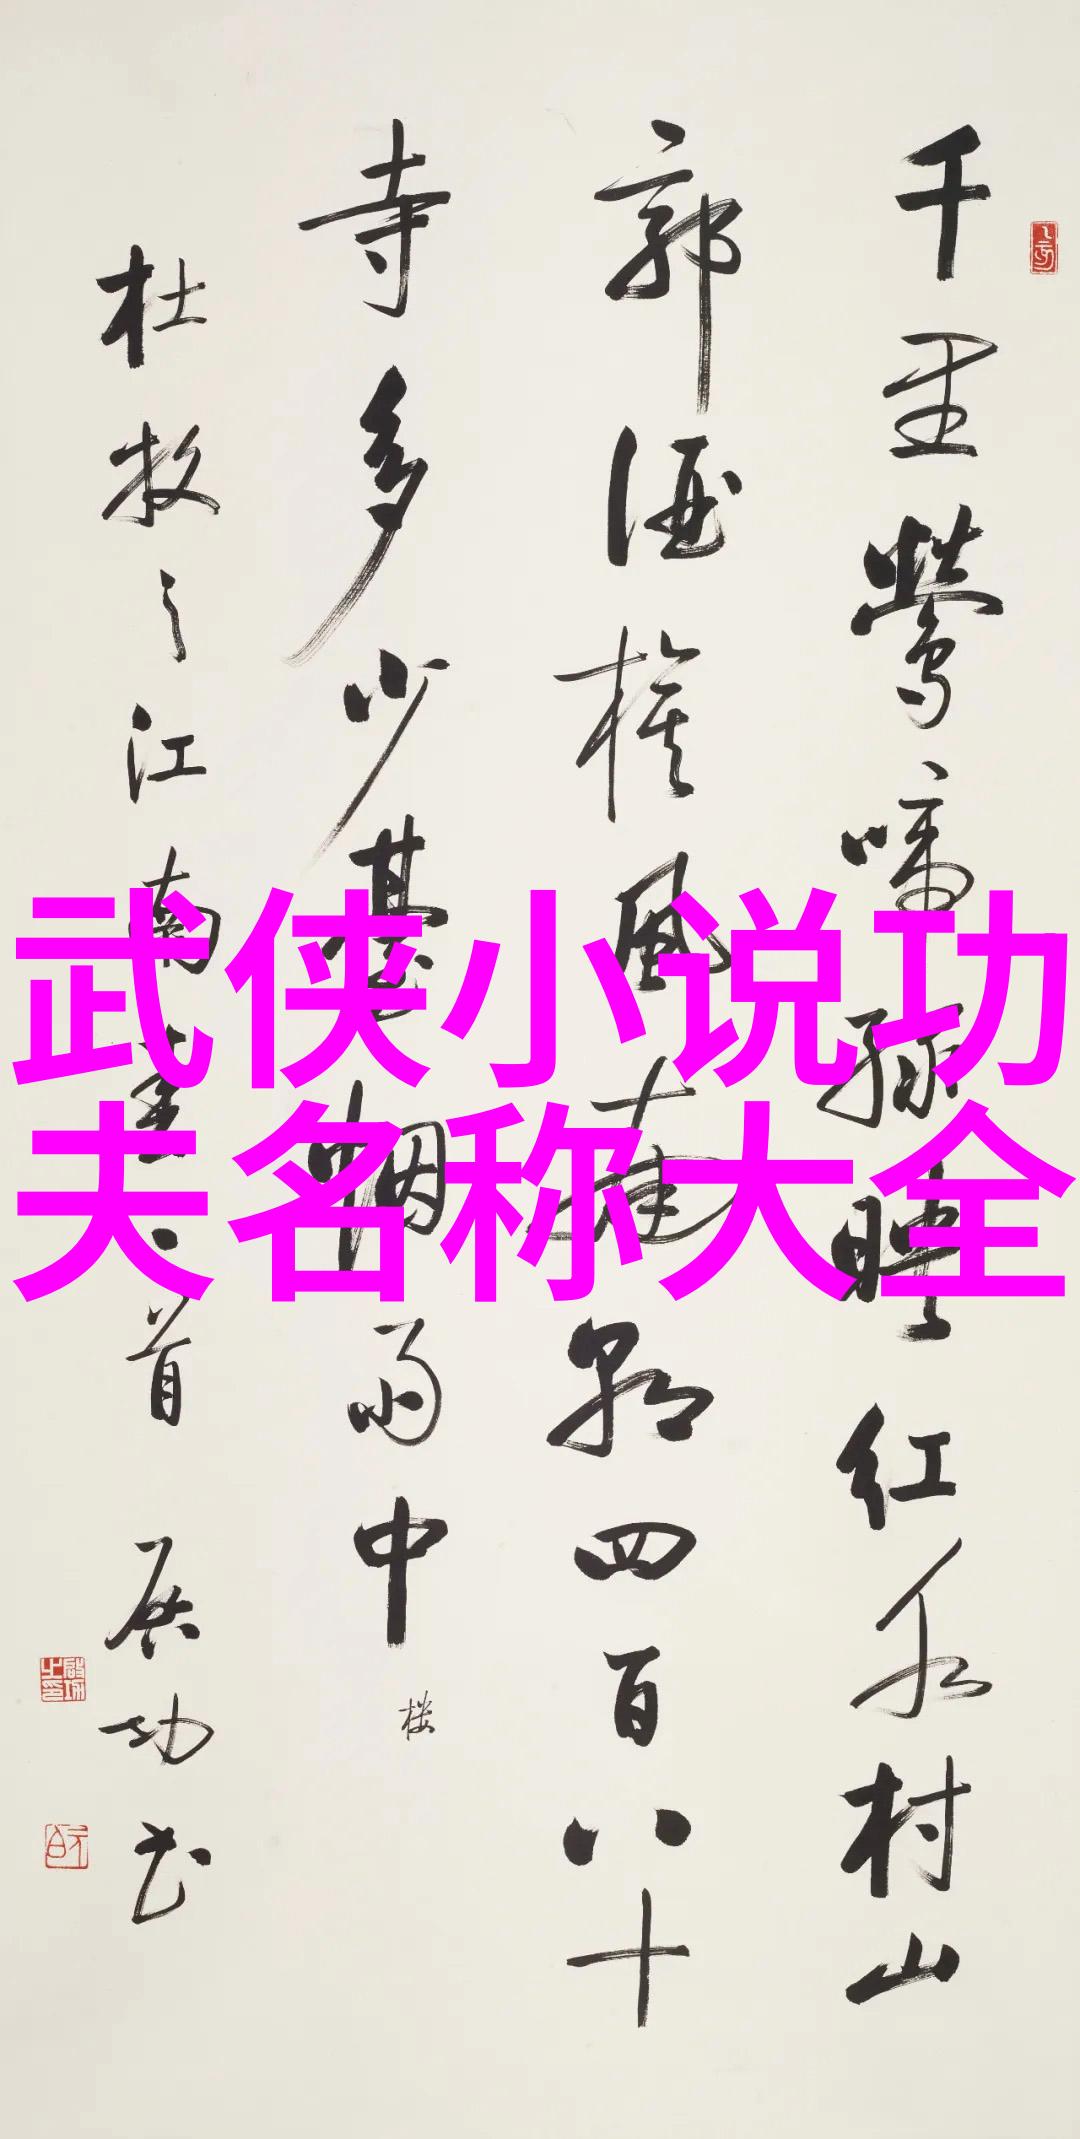 武侠小说功
夫名称大全
千里鶯啼绿映红水村山
郭酒旗風南朝四百八十
寺多少臺烟雨中
楼
杜牧之江南春一首 启功书